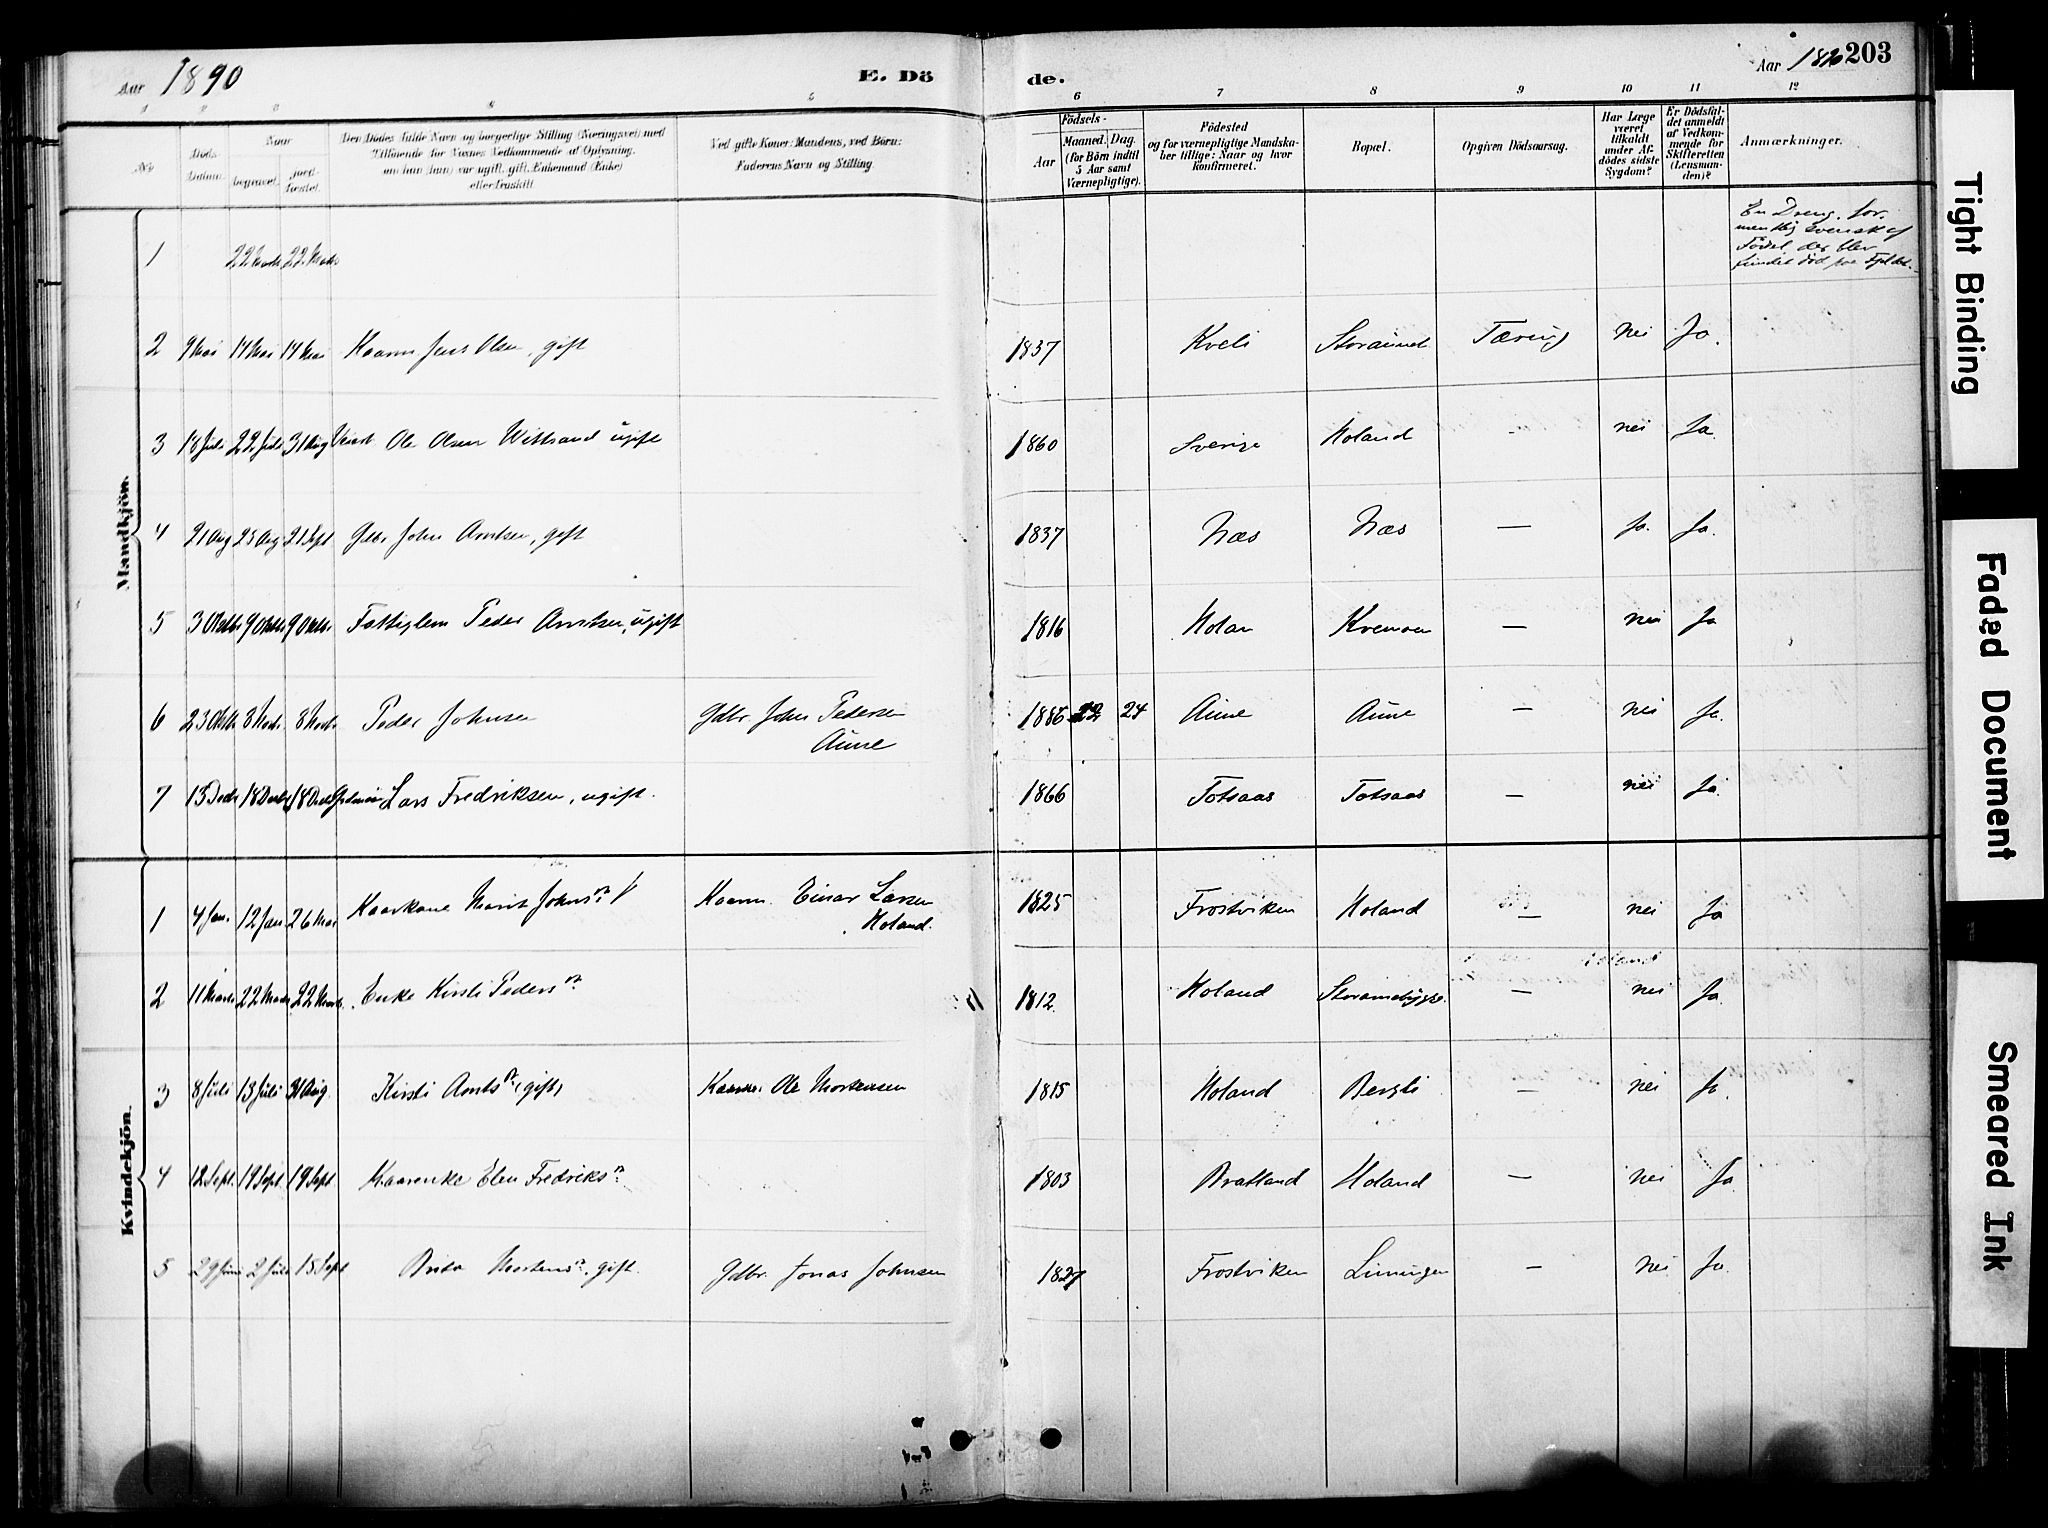 Aar 1890
E. Döde.
Aar 1890 203
1 2 3 4 5 6 7 8 9 10 11 12
No
Döds-Datum.
Naar
begravet.
jordfæstet.
Den Dödes fulde Navn og borgerlige Stilling (Næringsvei) med
Tilföiende for Voxnes Vedkommende af Oplysning,
om han (hun) var ugift, gift, Enkemand (Enke)
eller fraskilt
Ved gifte Koner: Mandens, ved Börn:
Faderens Navn og Stilling.
Födsels-
Aar
Maaned.
Dag.
(for Börn indtil
5 Aar samt
Værnepligtige).
Födested
og for værnepligtige Mandska-
ber tillige: Naar og hvor
konfirmeret.
Bopæl.
Opgiven Dödsaarsag.
Har Læge
været
tilkaldt
under Af-
dödes sidste
Sygdom?
Er Dödsfal-
det anmeldt
af Vedkom-
mende for
Skifteretten
(Lensman-
den)?
Anmærkninger.
Mandkjön.
1 22 Marts 22 Marts
En Dreng, for-
mentlig Svensk af
Födsel, der blev
fundet död paa Fjeldet.
2 9 Mai 14 Mai 14 Mai Kaarm. Jens Olsen, gift 1837 Kveli Storaunet Tæring nei Ja.
3 18 Juli 22 Juli 31 Aug Ole Olsen ugift 1860 Sverige Holand - nei Ja.
4 21 Aug 23 Aug 21 Sept Gdbr. John Arntsen, gift 1837 Næs Næs — Ja. Ja.
5 3 Oktbr 9 Oktbr. 9 Oktbr. Fattiglem Peder Arntsen, ugift 1816 Holan Kvernoen — nei Ja
6 23 Oktbr 8 Novbr. 8 Novbr. Peder Johnsen Gdbr. John Pedersen
Aune
1886 12 24 Aune Aune — nei Ja.
7 15 Decbr 18 Decbr 18 Decbr Lars Fredriksen, ugift. 1866 Totsaas Totsaas — nei Ja.
Kvindekjön.
1 4 Jan. 12 Jan. 26 Mai Kaarkone Marit Johnsdr. Kaarm. Einar Larsen
Holand.
1825 Frostviken Holand — nei Ja
2 11 Marts 22 Marts 22 Marts. Enke Kirsti Pedersdr. 1812. Holand — nei Ja.
3 8 Juli 13 Juli 31 Aug. Kirsti Arntsdr., gift, Kaarm. Ole Mortensen 1815 Holand Bergli — nei Ja.
4 12 Sept. 19 Sept. 19 Sept Kaarenke Elen Fredriksdr. 1803 Bratland Holand — nei Ja.
5 29 Juni 2 Juli 15 Sept Mortensdr., gift. Gdbr. Jonas Johnsen 1827 Frostviken Limingen — nei Ja.
Tight Binding
Faded Document
Smeared Ink